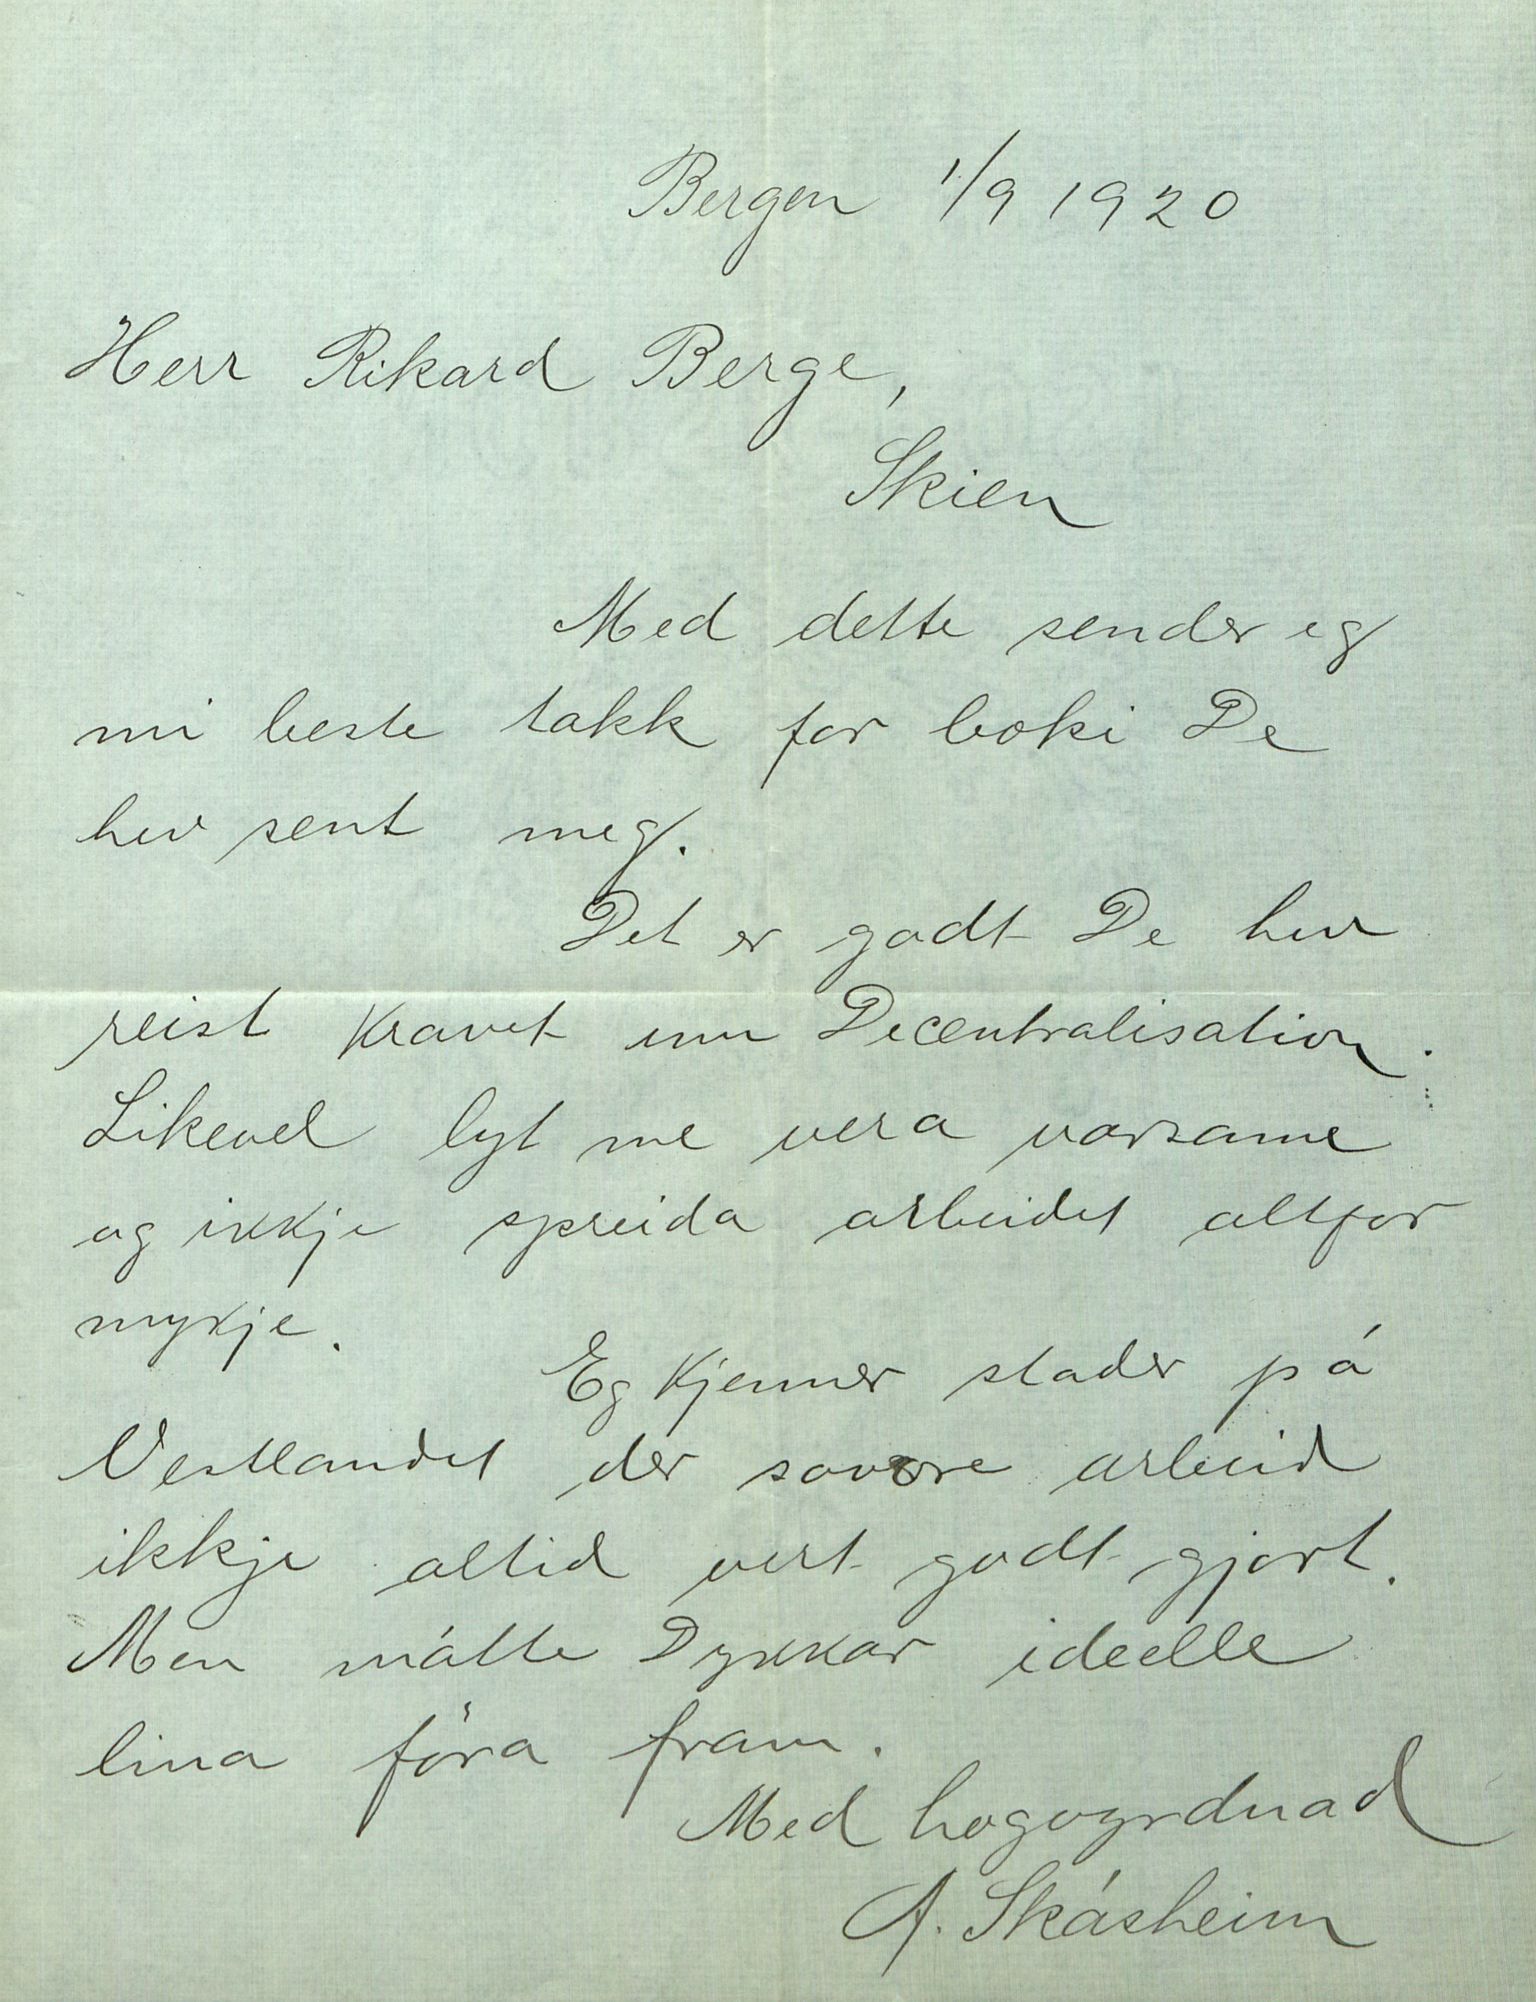 Bergen 1/9 1920
Herr Rikard Berge,
Skien
Med dette sender eg
mi beste takk for boki De
hev sent meg.
Det er godt De hev
reist kravet um Decentralisation.
Likevel lyt me vera varsame
og ikkje spreida arbeidet altfor
mykje.
Eg kjenner stader på
Vestlandet der sovore arbeid
ikkje altid vert godt gjort.
Men måtte Dykkar ideelle
lina föra fram.
Med høgvyrdnad
A. Skásheim